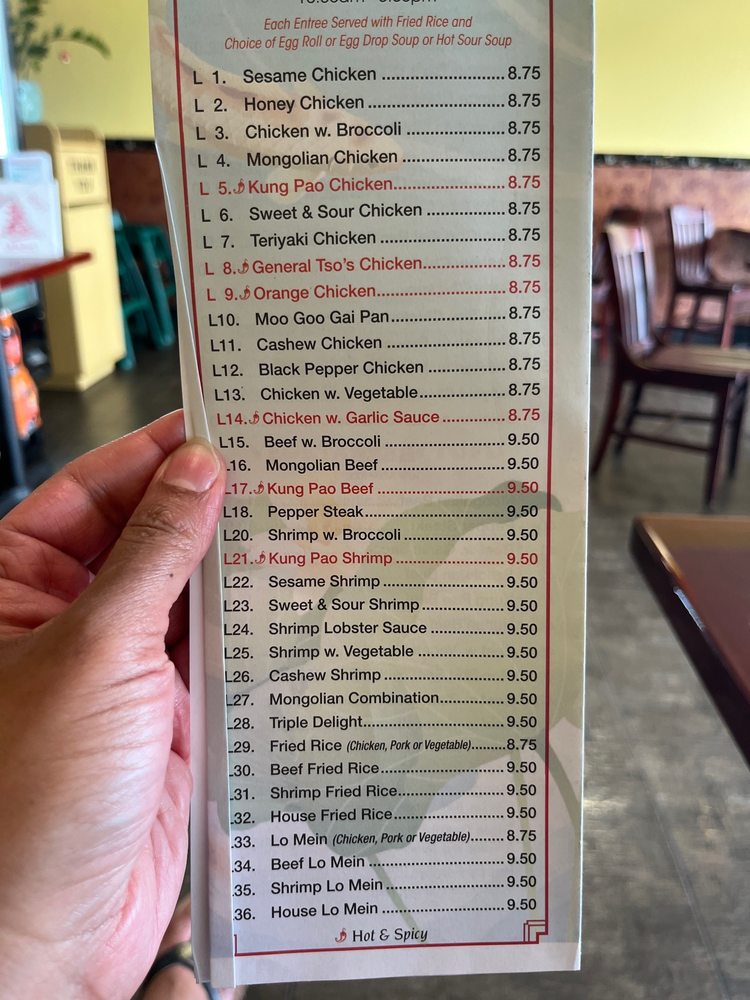 Each Entree Served with Fried Rice and
Choice of Egg Roll or Egg Drop Soup or Hot Sour Soup
L 1. Sesame Chicken ............................ 8.75
L 2. Honey Chicken ............................... 8.75
L 3. Chicken w. Broccoli ...................... 8.75
L 4. Mongolian Chicken ....................... 8.75
L 5. Kung Pao Chicken.......................... 8.75
L 6. Sweet & Sour Chicken .................. 8.75
L 7. Teriyaki Chicken ............................. 8.75
L 8. General Tso's Chicken................... 8.75
L 9. Orange Chicken.............................. 8.75
L10. Moo Goo Gai Pan........................... 8.75
L11. Cashew Chicken ............................ 8.75
L12. Black Pepper Chicken .................. 8.75
L13. Chicken w. Vegetable.................... 8.75
L14. Chicken w. Garlic Sauce ............... 8.75
L15. Beef w. Broccoli ............................. 9.50
L16. Mongolian Beef .............................. 9.50
L17. Kung Pao Beef ............................... 9.50
L18. Pepper Steak.................................. 9.50
L20. Shrimp w. Broccoli ......................... 9.50
L21. Kung Pao Shrimp ........................... 9.50
L22. Sesame Shrimp .............................. 9.50
L23. Sweet & Sour Shrimp ..................... 9.50
L24. Shrimp Lobster Sauce ................... 9.50
L25. Shrimp w. Vegetable ...................... 9.50
L26. Cashew Shrimp .............................. 9.50
L27. Mongolian Combination................. 9.50
L28. Triple Delight.................................. 9.50
L29. Fried Rice (Chicken, Pork or Vegetable)......... 8.75
L30. Beef Fried Rice............................... 9.50
L31. Shrimp Fried Rice........................... 9.50
L32. House Fried Rice............................ 9.50
L33. Lo Mein (Chicken, Pork or Vegetable)......... 8.75
L34. Beef Lo Mein .................................. 9.50
L35. Shrimp Lo Mein.............................. 9.50
L36. House Lo Mein ............................... 9.50
Hot & Spicy